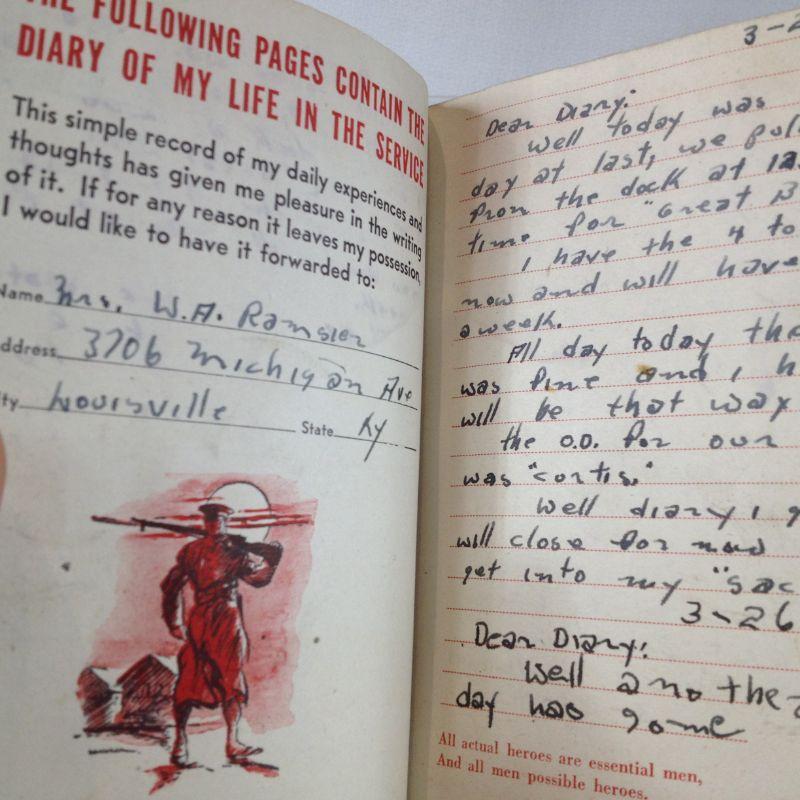 THE FOLLOWING PAGES CONTAIN THE
DIARY OF MY LIFE IN THE SERVICE
This simple record of my daily experiences and
thoughts has given me pleasure in the writing
of it. If for any reason it leaves my possession,
I would like to have it forwarded to:
Name Mrs. W.A. Ramsier
Address 3706 Michigan Ave
City Louisville State Ky
3-2
Dear Diary:
Well today was
day at last, we pul
from the dock at 12
time for "Great B
I have the 4 to
now and will have
a week.
All day today the
was fine and I h
will be that way
the O.D. for our
was "Cortis."
Well diary I g
will close for now
get into my "sac
3-26
Dear Diary:
Well anothe
day has gone
All actual heroes are essential men,
And all men possible heroes.